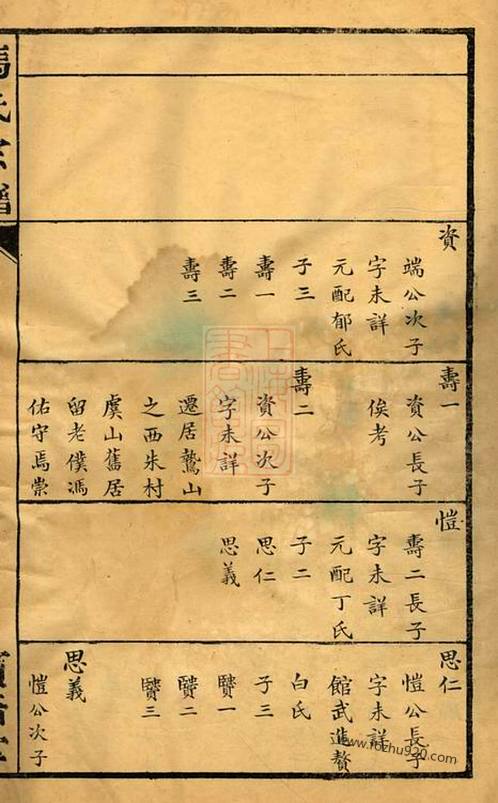 資
端公次子
字未詳
元配郁氏
子三
壽一
壽二
壽三
壽一
資公長子
俟考
壽二
資公次子
字未詳
遷居鷲山
之西朱村
虞山舊居
留老僕馮
佑守焉崇
愷
壽二長子
字未詳
元配丁氏
子二
思仁
思義
思仁
愷公長子
字未詳
館武進贅
白氏
子三
贒一
贒二
贒三
思義
愷公次子
馮氏宗譜
www.fozhu920.com